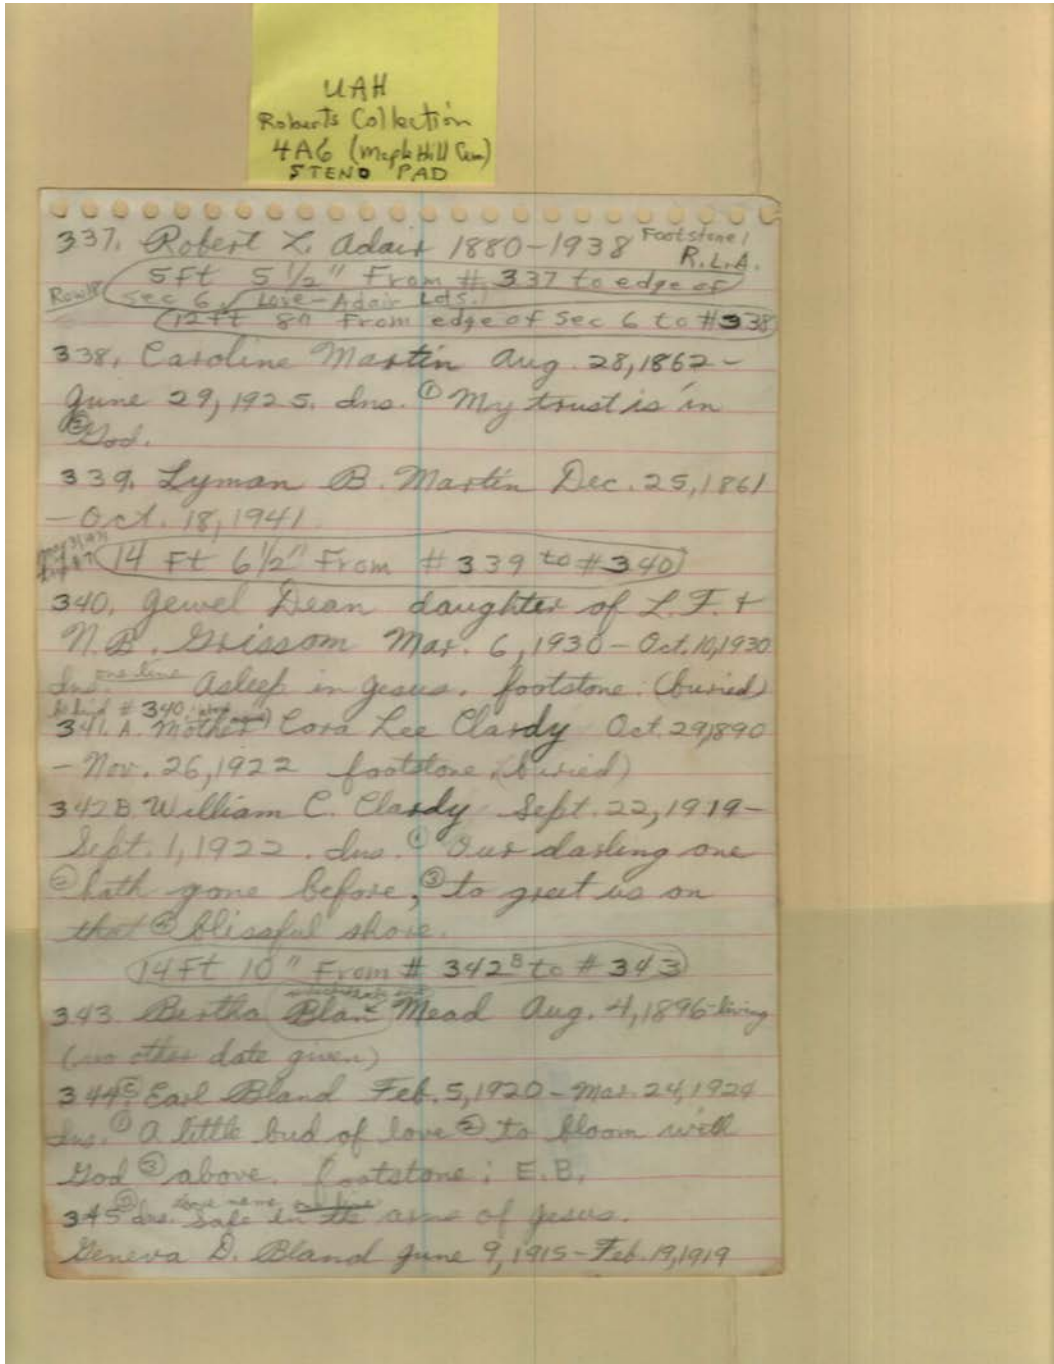 UAH
Roberts Collection
4A6 (Maple Hill Cem)
STENO PAD
337. Robert L. Adair 1880-1938 Footstone:
R.L.A.
5Ft 5 1/2" From #337 to edge of
Row 18
Sec 6 Love-Adair Lots.
12Ft 8" From edge of Sec 6 to #338
338. Caroline Martin Aug. 28, 1862-
June 29, 1925. Ins. ① My trust is in
② God.
339. Lyman B. Martin Dec. 25, 1861
- Oct. 18, 1941
14 Ft 6 1/2" From #339 to #340
340. Jewel Dean daughter of L.F. &
N.B. Grissom Mar. 6, 1930 - Oct. 10, 1930
Ins. one line Asleep in Jesus. footstone. (buried)
behind #340
341. A. Mother Cora Lee Clardy Oct. 29, 1890
- Nov. 26, 1922 footstone (buried)
342B. William C. Clardy Sept. 22, 1919-
Sept. 1, 1922. Ins. ① Our darling one
② hath gone before, ③ to greet us on
that ④ blissful shore.
14Ft 10" From #342B to #343
343 Bertha Blan Mead Aug. 4, 1896-living
(no other date given)
344 Earl Bland Feb. 5, 1920 - Mar. 24, 1924
Ins. ① A little bud of love ② to bloom with
God ③ above. footstone: E.B.
345 Ins. above name Safe in the arms of Jesus.
Geneva D. Bland June 9, 1915 - Feb. 19, 1919